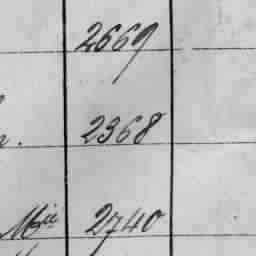 2669
2368
Mie 2740